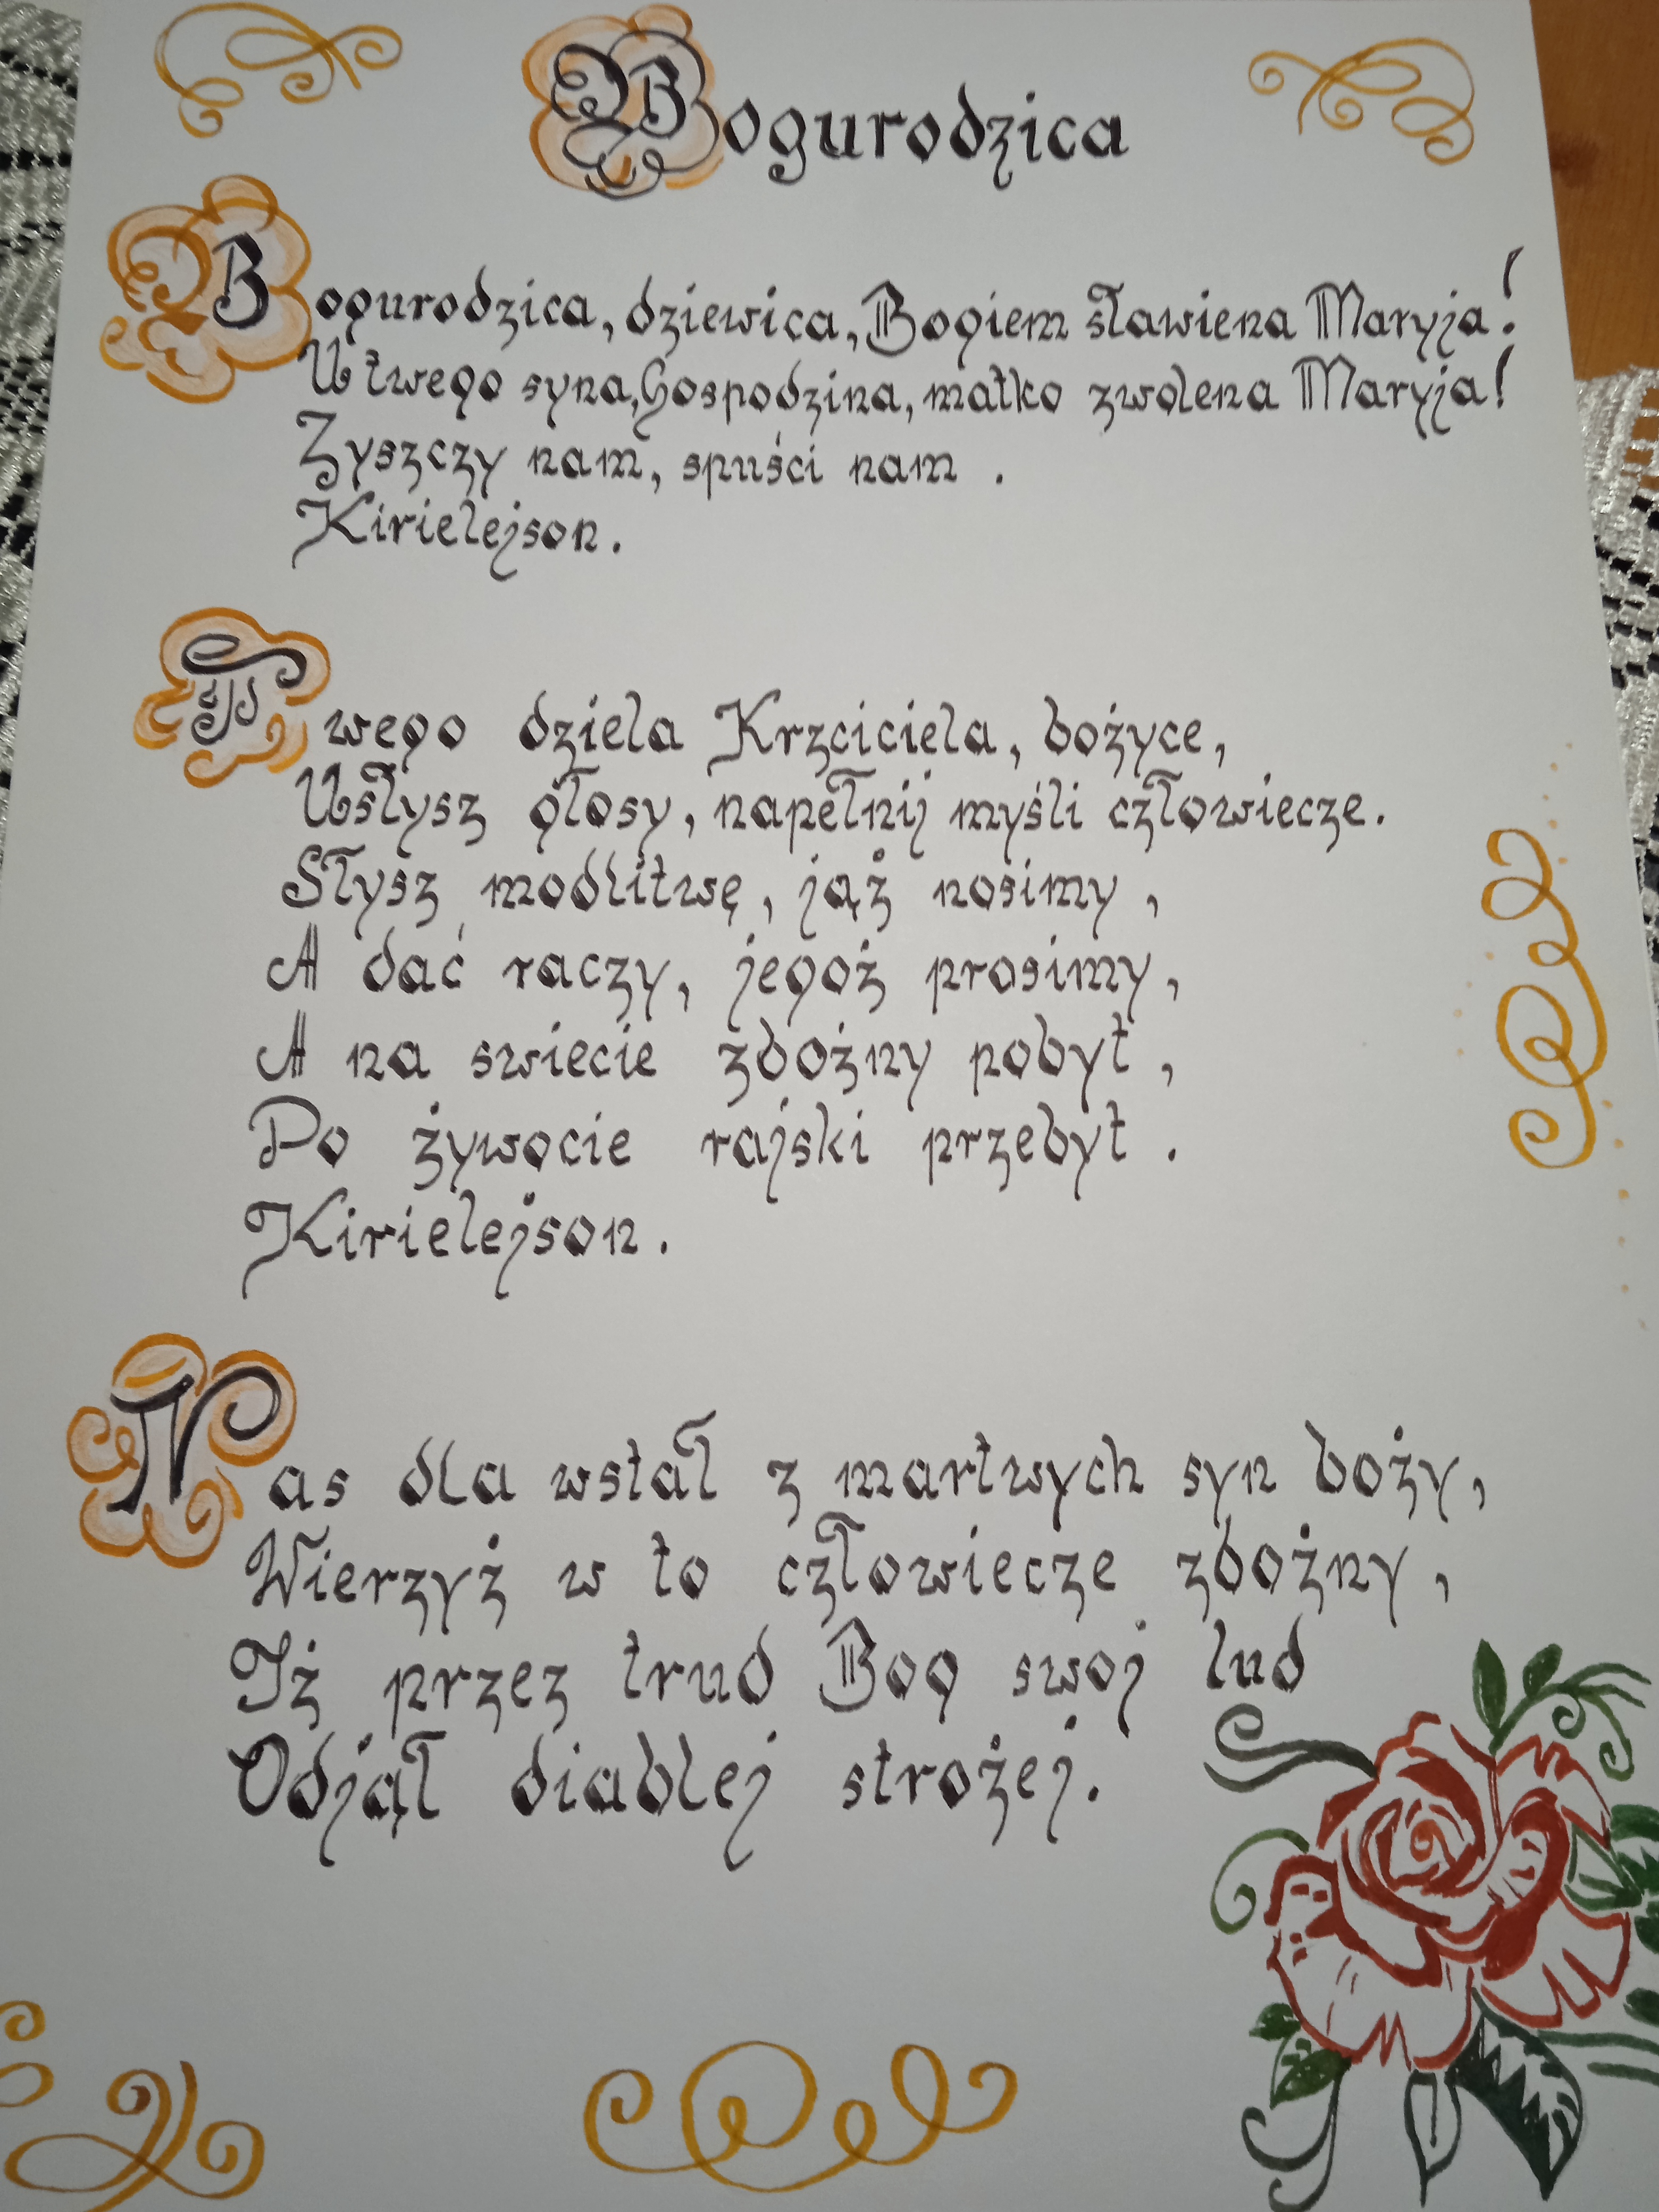 Bogurodzica
Bogurodzica, dziewica, Bogiem sławiena Maryja!
U twego syna, Gospodzina, matko zwolena Maryja!
Zyszczy nam, spuści nam .
Kirielejson.
Twego dziela Krzciciela, bożyce,
Usłysz głosy, napełnij myśli człowiecze.
Słysz modlitwę, jąż nosimy,
A dać raczy, jegoż prosimy,
A na swiecie zbożny pobyt,
Po żywocie rajski przebyt.
Kirielejson.
Nas dla wstał z martwych syn boży,
Wierzyż w to człowiecze zbożny,
Iż przez trud Bog swoj lud
Odjął diablej strożej.